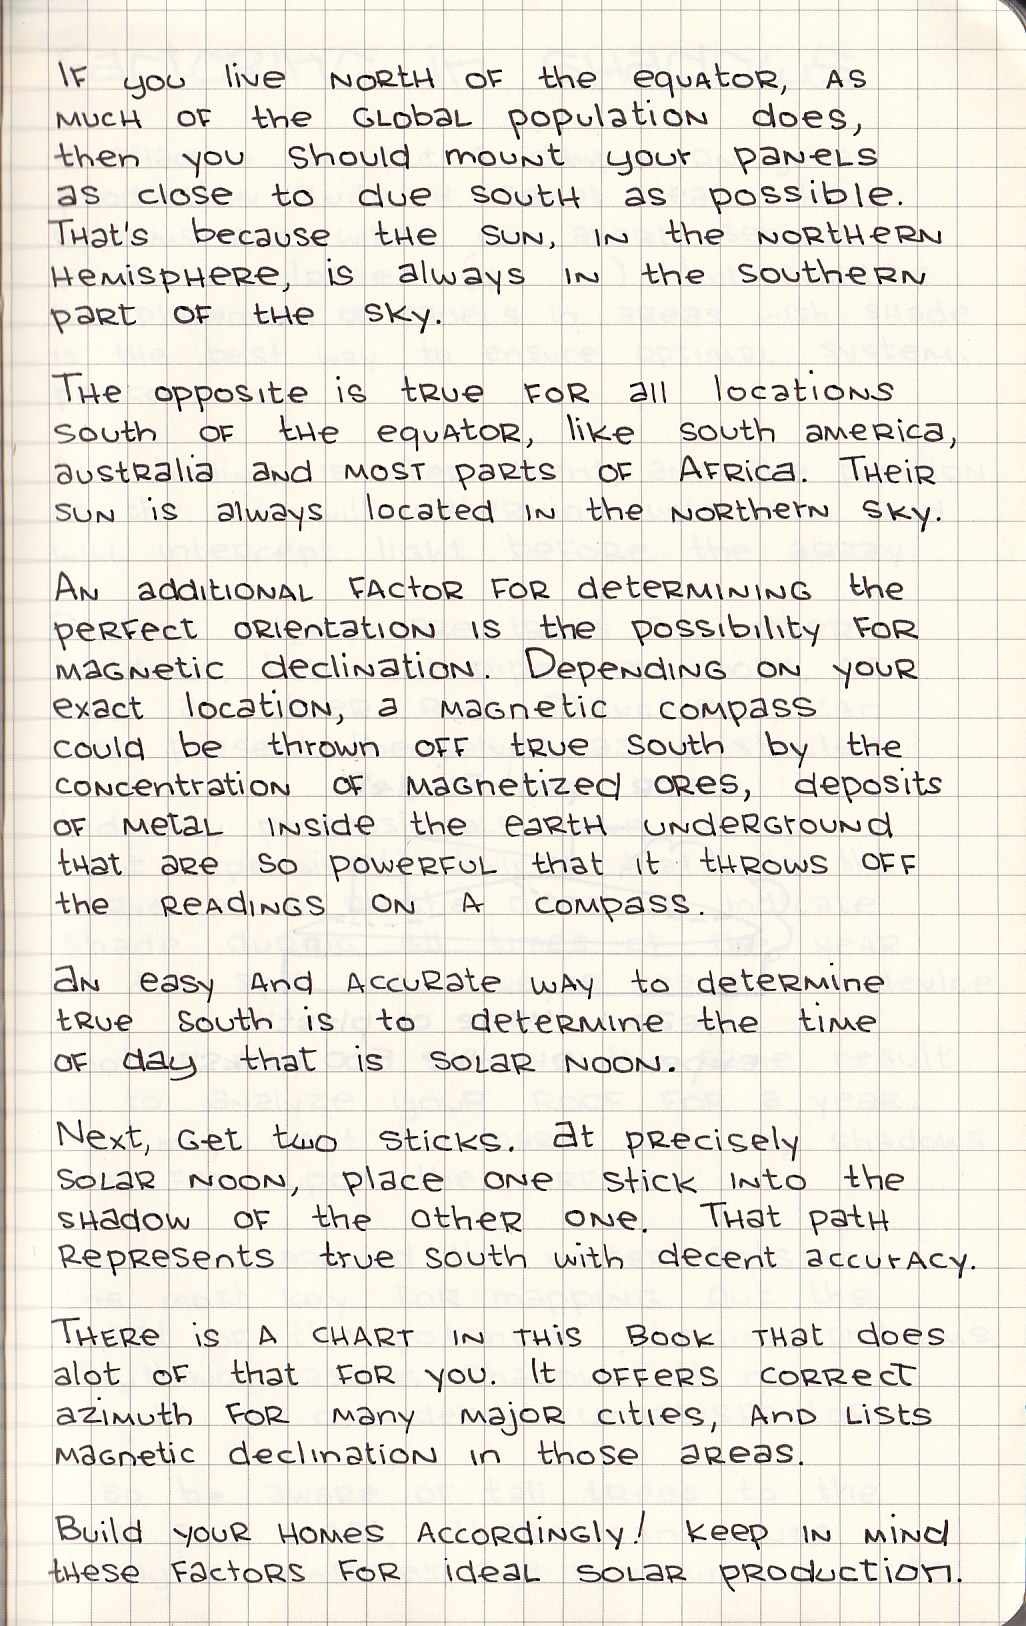 If you live north of the equator, as
much of the global population does,
then you should mount your panels
as close to due south as possible.
That's because the sun, in the northern
hemisphere, is always in the southern
part of the sky.
The opposite is true for all locations
south of the equator, like south america,
australia and most parts of Africa. Their
sun is always located in the northern sky.
An additional factor for determining the
perfect orientation is the possibility for
magnetic declination. Depending on your
exact location, a magnetic compass
could be thrown off true south by the
concentration of magnetized ores, deposits
of metal inside the earth underground
that are so powerful that it throws off
the readings on a compass.
an easy and accurate way to determine
true south is to determine the time
of day that is solar noon.
Next, get two sticks. at precisely
solar noon, place one stick into the
shadow of the other one. That path
represents true south with decent accuracy.
There is a chart in this book that does
alot of that for you. It offers correct
azimuth for many major cities, and lists
magnetic declination in those areas.
Build your homes accordingly! keep in mind
these factors for ideal solar production.